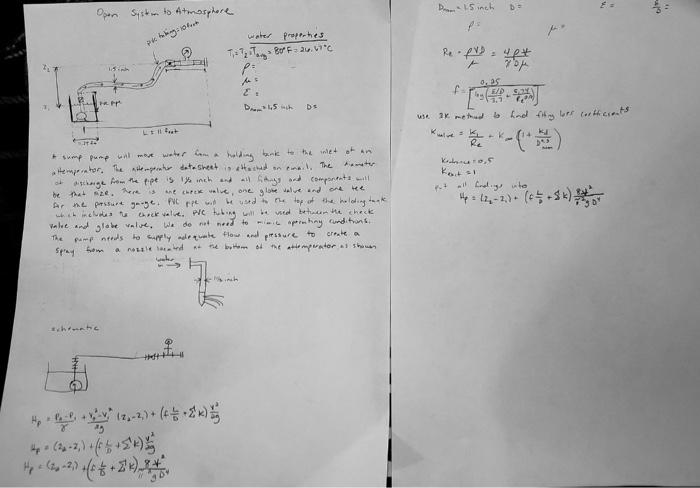 Open System to Atmosphere
PVC tubing = 10 feet
1.5 inch
Z₂
Z₁
PVC pipe
L = 11 feet
water properties
T₁ = T₂ = Tavg = 80°F = 26.67°C
ρ =
μ =
ε =
Dnom = 1.5 inch D =
A sump pump will move water from a holding tank to the inlet of an
attemperator. The attemperator datasheet is attached on email. The diameter
of discharge from the pipe is 1½ inch and all fittings and components will
be that size. There is one check valve, one globe valve and one tee
for the pressure gauge. PVC pipe will be used to the top of the holding tank
which includes the check valve. PVC tubing will be used between the check
valve and globe valve. We do not need to mimic operating conditions.
The pump needs to supply adequate flow and pressure to create a
spray from a nozzle located at the bottom of the attemperator as shown
water
in →
1½ inch
schematic
Hp = (P₂-P₁)/γ + (V₂²-V₁²)/2g (Z₂-Z₁) + (f L/D + ΣK) V²/2g
Hp = (Z₂-Z₁) + (f L/D + ΣK) V²/2g
Hp = (Z₂-Z₁) + (f L/D + ΣK) 8V²/π²gD⁴
Dnom = 1.5 inch D = ε = ε/D =
ρ = μ =
Re = ρVD/μ = 4ρV/πDμ
f = 0.25/[log(ε/D/3.7 + 5.74/Re^0.9)]
use 3K method to find fitting loss coefficients
Kvalve = K₁/Re + K∞(1 + Kd/D^0.3 nom)
Kentrance = 0.5
Kexit = 1
put all findings into
Hp = (Z₂-Z₁) + (f L/D + ΣK) 8V²/π²gD⁴